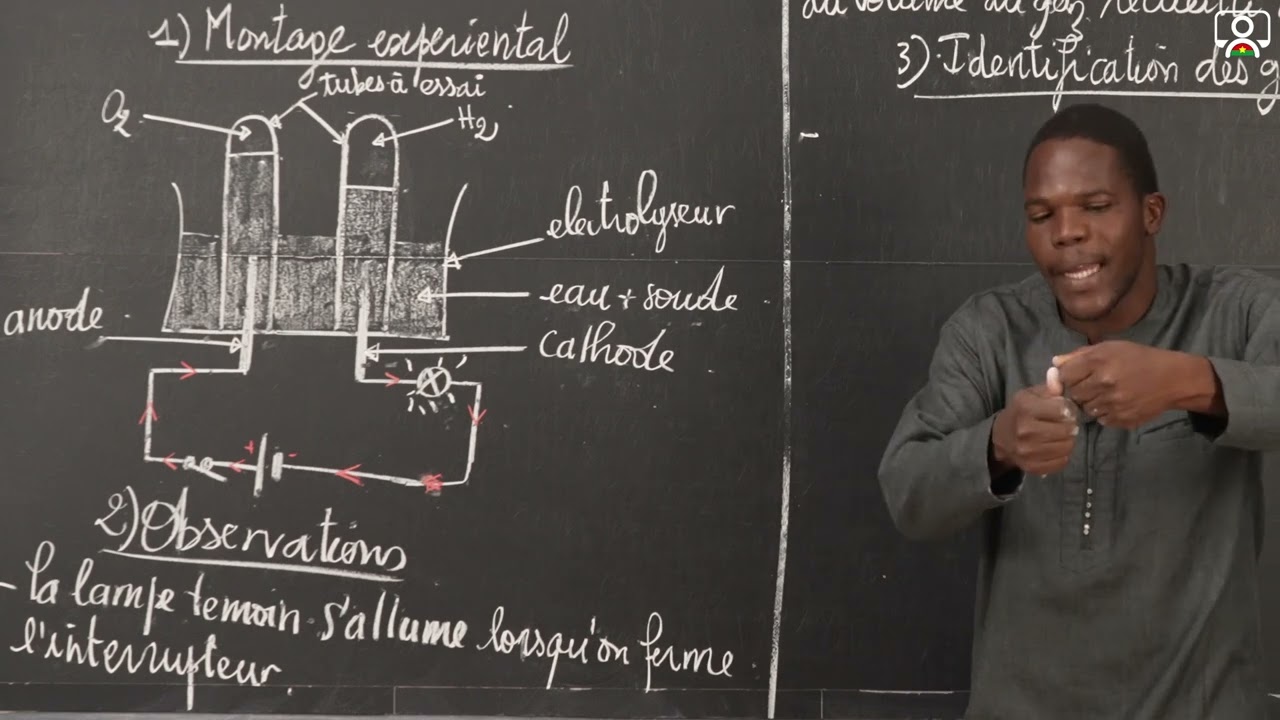 1) Montage experiental
tubes à essai
O2
H2
electrolyseur
eau + soude
anode
cathode
+ -
2) Observations
- la lampe temoin s'allume lorsqu'on ferme
l'interrupteur.
du volume du gaz recueilli
3) Identification des g
-